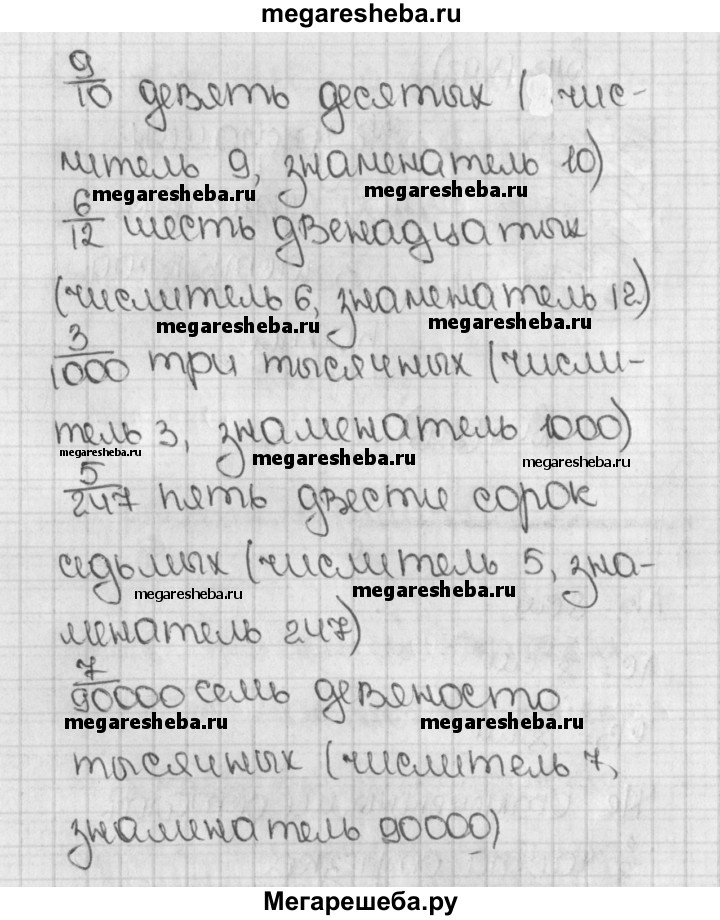 megaresheba.ru
9/10 девять десятых (чис-
литель 9, знаменатель 10)
megaresheba.ru megaresheba.ru
6/12 шесть двенадцатых
(числитель 6, знаменатель 12)
megaresheba.ru megaresheba.ru
3/1000 три тысячных (числи-
тель 3, знаменатель 1000)
megaresheba.ru megaresheba.ru megaresheba.ru
5/247 пять двести сорок
седьмых (числитель 5, зна-
megaresheba.ru megaresheba.ru
менатель 247)
7/90000 семь девяносто
megaresheba.ru megaresheba.ru
тысячных (числитель 7,
знаменатель 90000)
Мегарешеба.ру